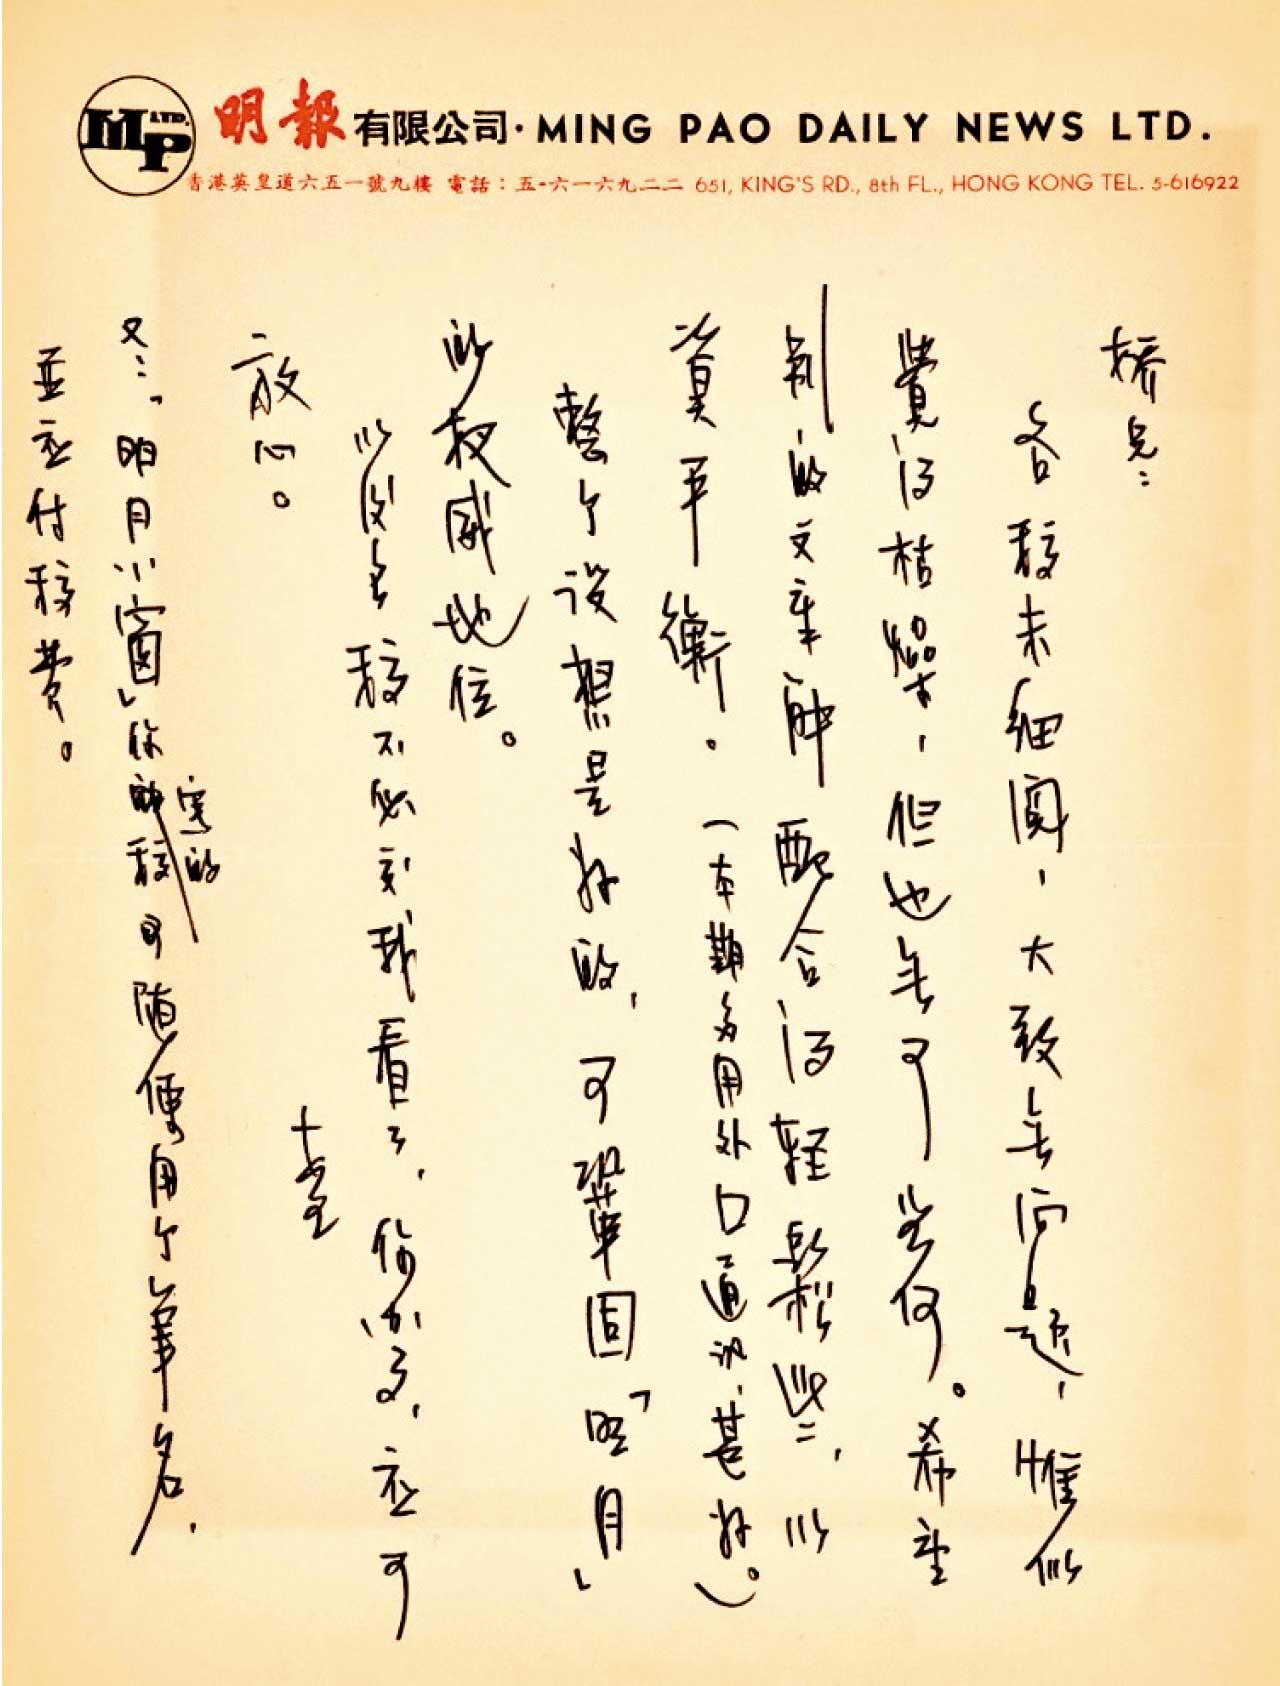 MP LTD.
明報有限公司·MING PAO DAILY NEWS LTD.
香港英皇道六五一號九樓 電話：五-六一六九二二 651, KING'S RD., 8th FL., HONG KONG TEL. 5-616922
桥兄：
各稿未细阅，大致无问题，惟似
覺得枯燥，但也无可奈何。希望
别的文章能配合得轻鬆些，以
資平衡。（本期多用外口通訊，甚好。）
整个设想是好的，可鞏固「明月」
的权威地位。
以後各稿不必交我看了，你办事，应可
放心。
又：「明月小窗」你寫的可随便用个筆名，
並应付稿费。